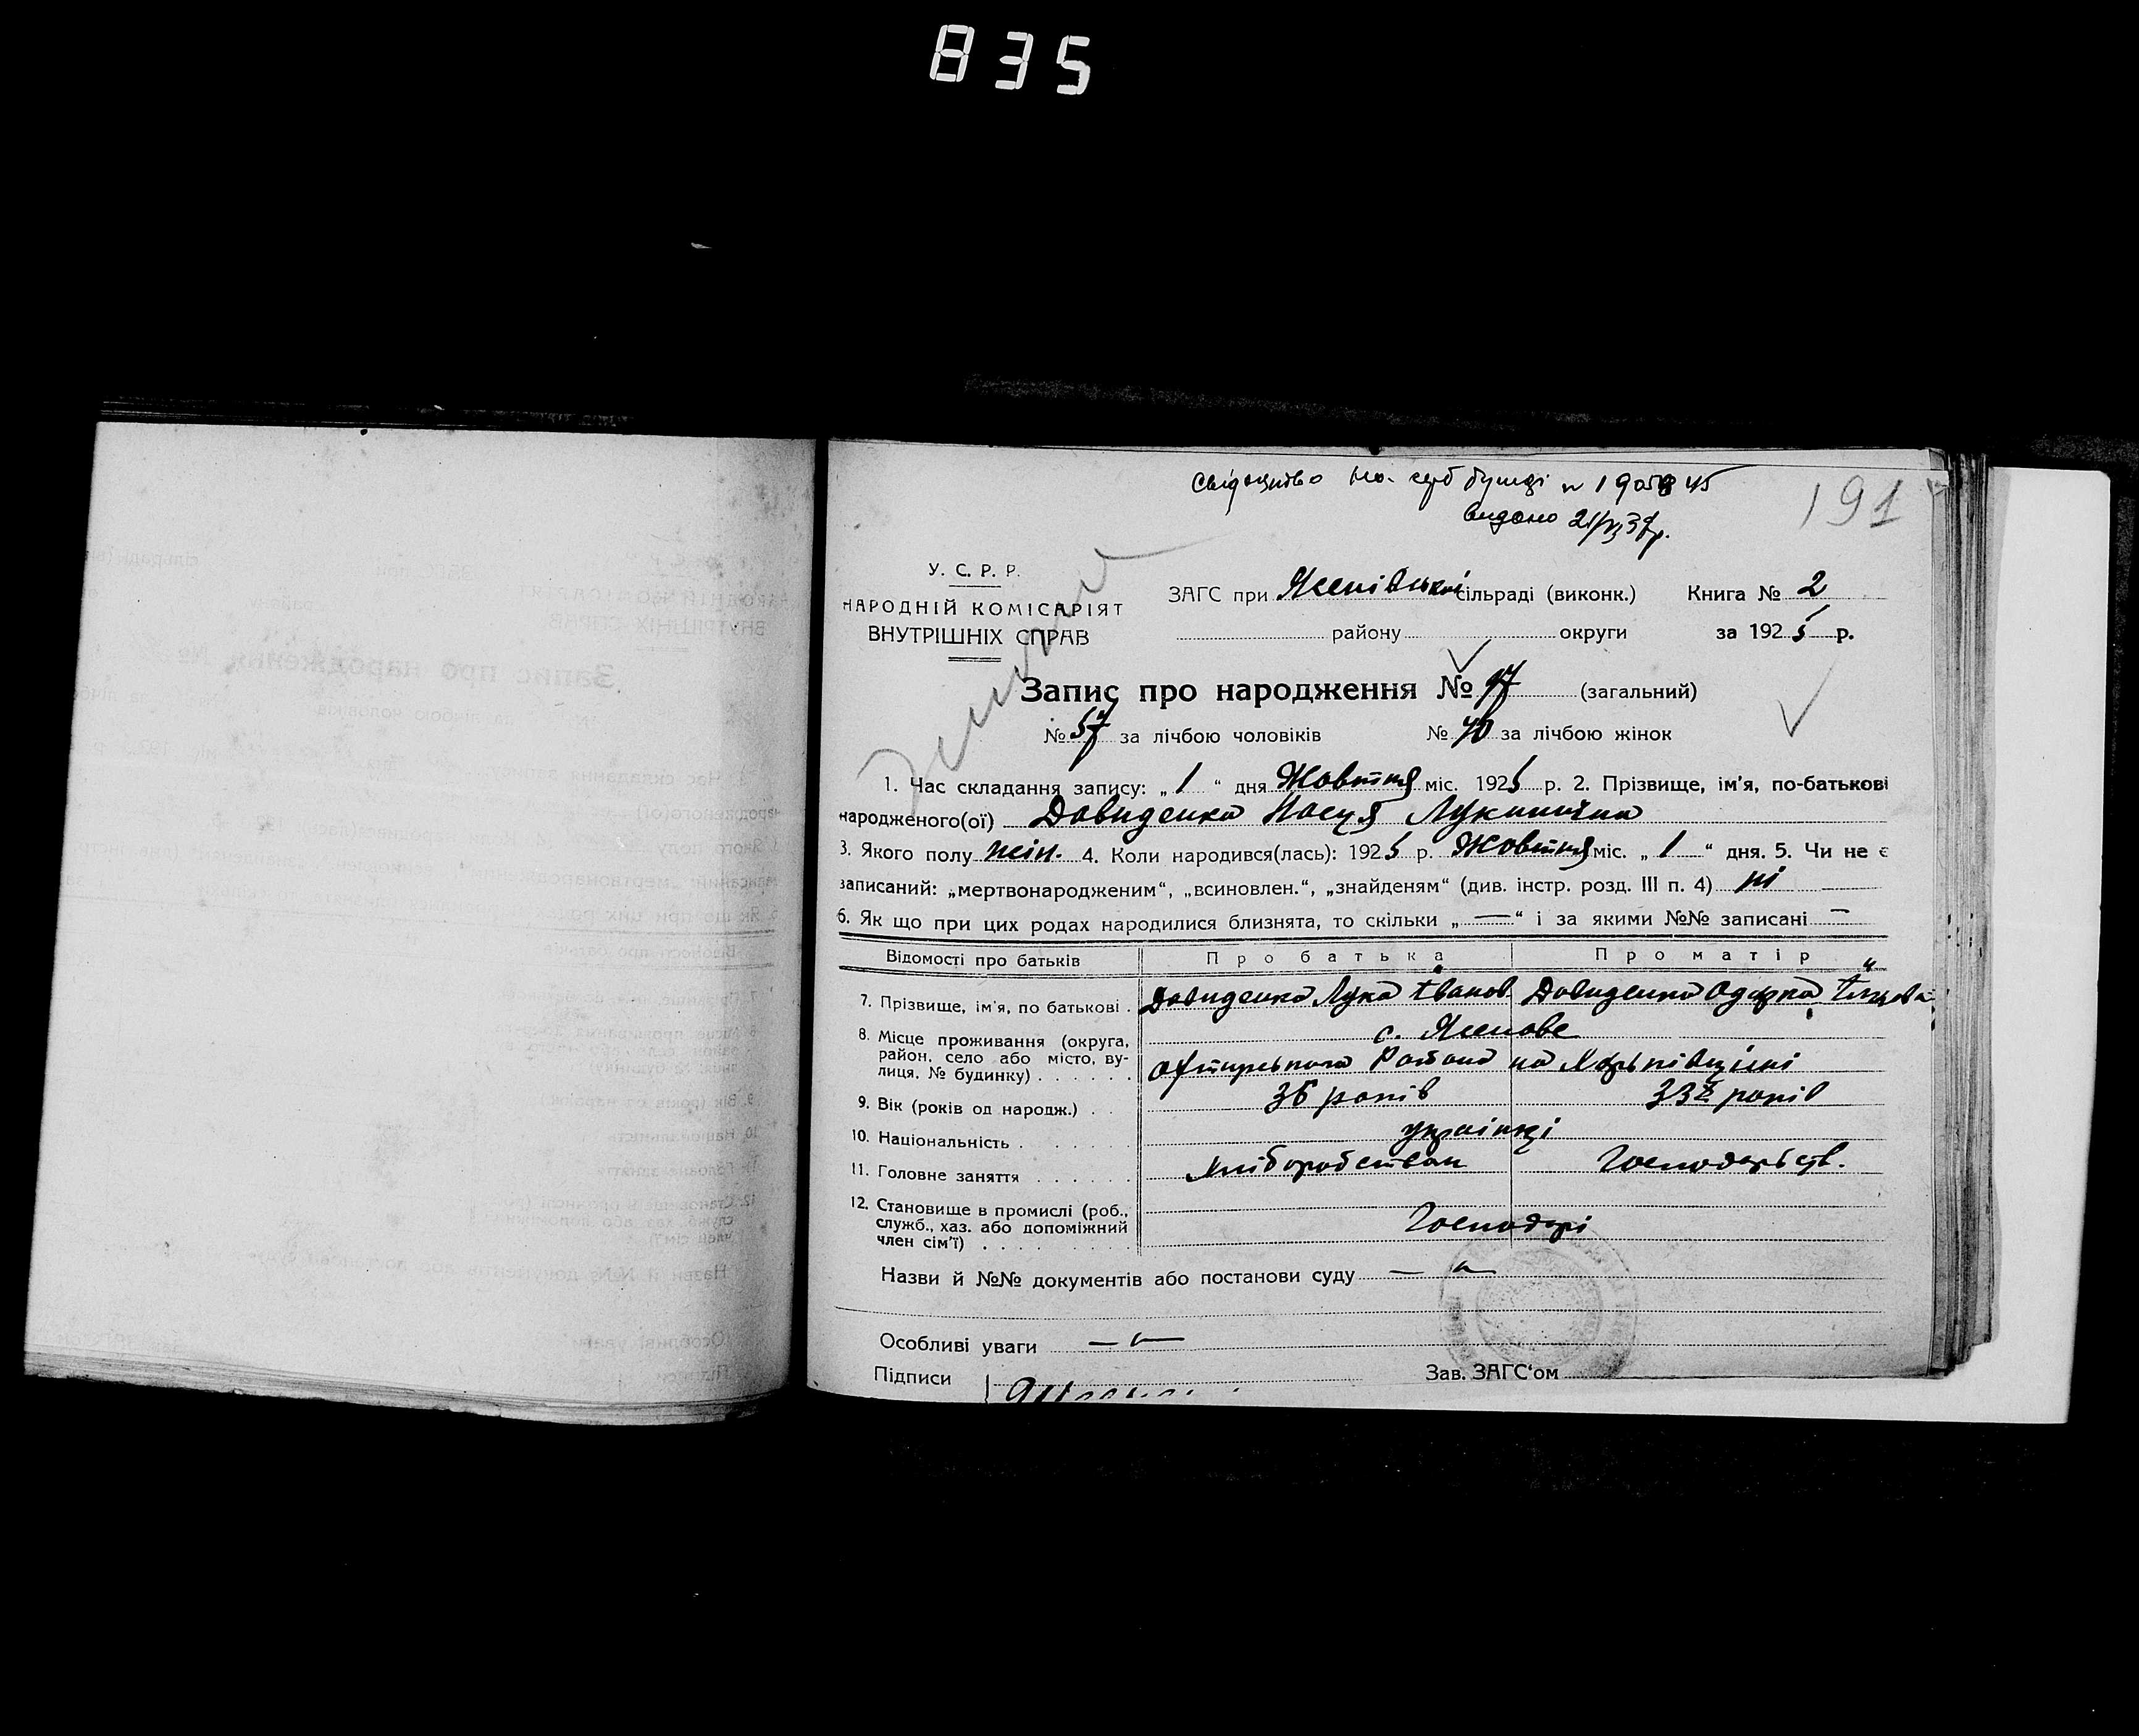 835
Свідоцтво
видано
191
У. С. Р. Р.
НАРОДНІЙ КОМІСАРІЯТ
ВНУТРІШНІХ СПРАВ
ЗАГС при Ясенівській сільраді (виконк.) Книга № 2
району округи за 1925 р.
Запис про народження № 97 (загальний)
№ 57 за лічбою чоловіків № 40 за лічбою жінок
1. Час складання запису: „ 1 “ дня Жовтня міс. 1925 р. 2. Прізвище, ім'я, по-батькові
народженого(ої) Давиденко Лукинична
3. Якого полу жін. 4. Коли народився(лась): 1925 р. Жовтня міс. „ 1 “ дня. 5. Чи не є
записаний: „мертвонародженим“, „всиновлен.“, „знайденям“ (див. інстр. розд. III п. 4) ні
6. Як що при цих родах народилися близнята, то скільки „ — “ і за якими №№ записані —
Відомості про батьків Про батька Про матір
7. Прізвище, ім'я, по батькові . Давиденко Лука Іванов. Давиденко Одарка
8. Місце проживання (округа, район, село або місто, вулиця, № будинку) . . . . . . с. Ясенове
Охтирського Району на Харьківщіні
9. Вік (років од народж.) . . 36 років 33 років
10. Національність . . . . . українці
11. Головне заняття . . . . . . Хліборобством Господарств.
12. Становище в промислі (роб., служб., хаз. або допоміжний член сім'ї) . . . . . . Господарі
Назви й №№ документів або постанови суду — " —
Особливі уваги — " —
Підписи Зав. ЗАГС'ом